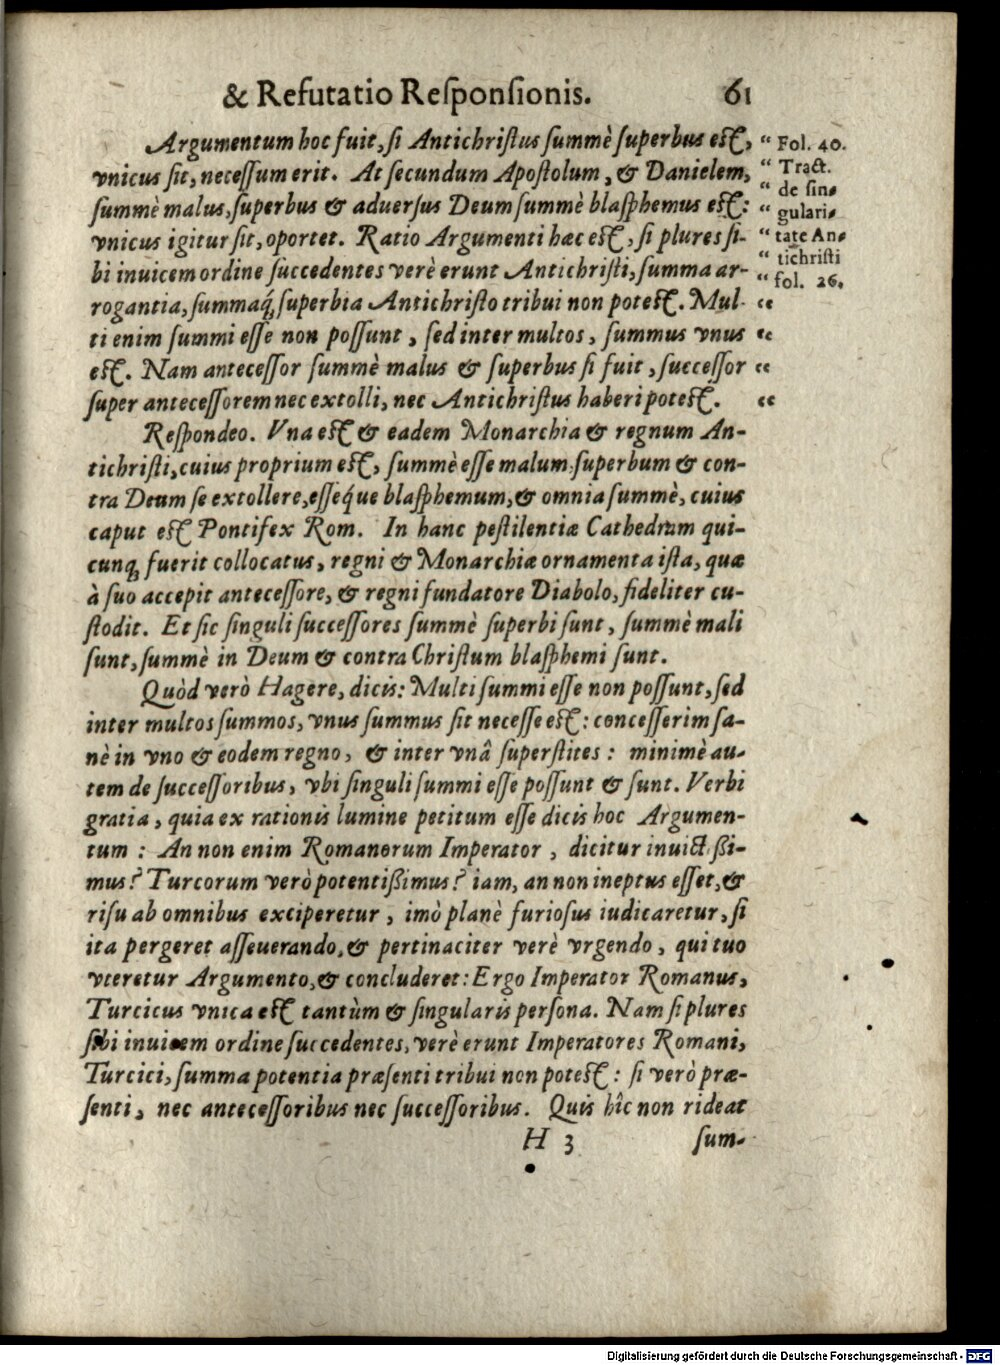 & Refutatio Reſponſionis. 61
Argumentum hoc fuit, ſi Antichriſtus ſummè ſuperbus eſt, “ Fol. 40.
vnicus ſit, neceſſum erit. At ſecundum Apoſtolum, & Danielem, “ Tract.
ſummè malus, ſuperbus & aduerſus Deum ſummè blaſphemus eſt: “ de ſin-
“ gulari-
vnicus igitur ſit, oportet. Ratio Argumenti hæc eſt, ſi plures ſi- “ tate An-
bi inuicem ordine ſuccedentes verè erunt Antichriſti, ſumma ar- “ tichriſti
“ fol. 26.
rogantia, ſummaq́; ſuperbia Antichriſto tribui non poteſt. Mul- “
ti enim ſummi eſſe non poſſunt, ſed inter multos, ſummus vnus “
eſt. Nam anteceſſor ſummè malus & ſuperbus ſi fuit, ſucceſſor “
ſuper anteceſſorem nec extolli, nec Antichriſtus haberi poteſt. “
Reſpondeo. Vna eſt & eadem Monarchia & regnum An-
tichriſti, cuius proprium eſt, ſummè eſſe malum, ſuperbum & con-
tra Deum ſe extollere, eſſeq́ue blaſphemum, & omnia ſummè, cuius
caput eſt Pontifex Rom. In hanc peſtilentiæ Cathedram qui-
cunq; fuerit collocatus, regni & Monarchiæ ornamenta iſta, quæ
à ſuo accepit anteceſſore, & regni fundatore Diabolo, fideliter cu-
ſtodit. Et ſic ſinguli ſucceſſores ſummè ſuperbi ſunt, ſummè mali
ſunt, ſummè in Deum & contra Chriſtum blaſphemi ſunt.
Quòd verò Hagere, dicis: Multi ſummi eſſe non poſſunt, ſed
inter multos ſummos, vnus ſummus ſit neceſſe eſt: conceſſerim ſa-
nè in vno & eodem regno, & inter vnâ ſuperſtites: minimè au-
tem de ſucceſſoribus, vbi ſinguli ſummi eſſe poſſunt & ſunt. Verbi
gratia, quia ex rationis lumine petitum eſſe dicis hoc Argumen-
tum: An non enim Romanorum Imperator, dicitur inuictißi-
mus? Turcorum verò potentißimus? iam, an non ineptus eſſet, &
riſu ab omnibus exciperetur, imò planè furioſus iudicaretur, ſi
ita pergeret aſſeuerando, & pertinaciter verè vrgendo, qui tuo
vteretur Argumento, & concluderet: Ergo Imperator Romanus,
Turcicus vnica eſt tantùm & ſingularis perſona. Nam ſi plures
ſibi inuicem ordine ſuccedentes, verè erunt Imperatores Romani,
Turcici, ſumma potentia præſenti tribui non poteſt: ſi verò præ-
ſenti, nec anteceſſoribus nec ſucceſſoribus. Quis hîc non rideat
H 3 ſum-
Digitalisierung gefördert durch die Deutsche Forschungsgemeinschaft - DFG